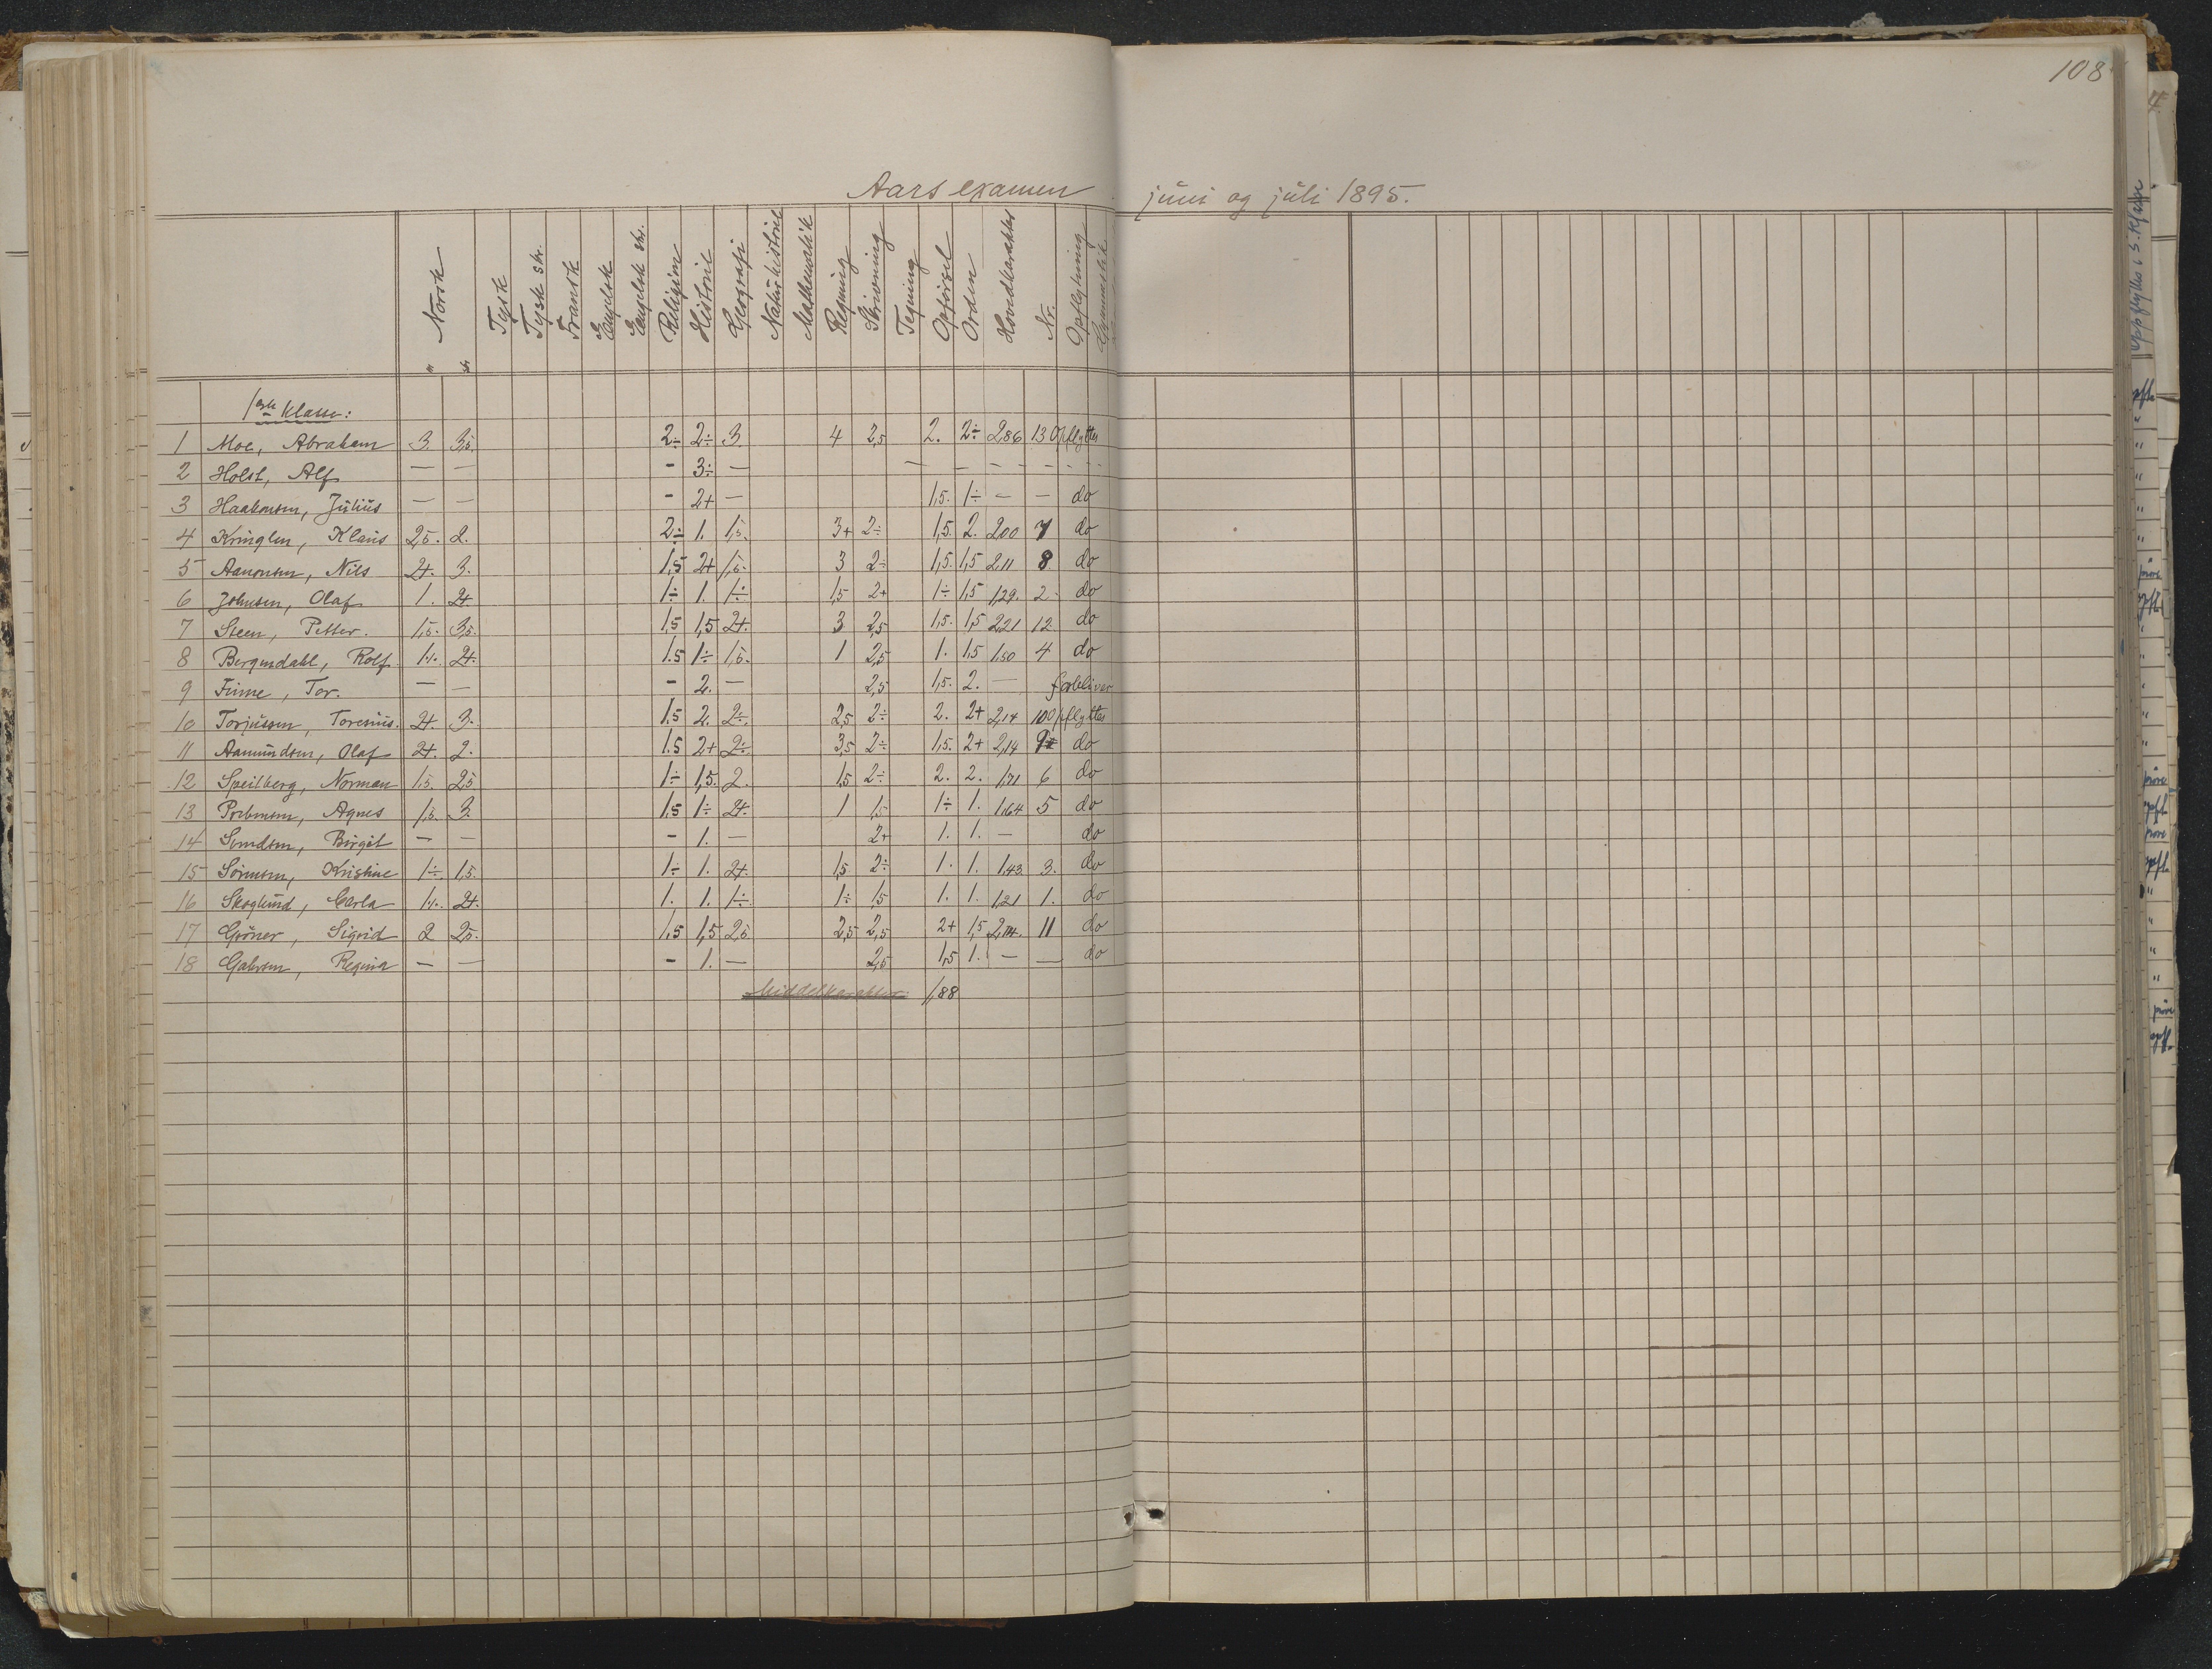 108
Aarsexamen juni og juli 1895.
Norsk Tysk Tysk skr. Fransk Engelsk Engelsk skr. Religion Historie Geografi Naturhistorie Mathematik Regning Skrivning Tegning Opførsel Orden Hovedkarakter Nr. Opflytning Gymnastik
m skr
1ste Klasse:
1 Moe, Abraham 3. 3,5. 2÷ 2÷ 3. 4 2,5 2. 2÷ 2,86 13 Opflyttes
2 Holst, Alf — — - 3÷ — — — — — — —
3 Haakonsen, Julius — — - 2+ — 1,5. 1÷ — — do
4 Kringlen, Klaus 2,5. 2. 2÷ 1. 1,5. 3+ 2÷ 1,5. 2. 2,00 7 do
5 Aanonsen, Nils 2+. 3. 1,5 2+ 1,5. 3 2÷ 1,5. 1,5 2,11 8 do
6 Johnsen, Olaf 1. 2+. 1÷ 1. 1÷ 1,5 2+ 1÷ 1,5 1,29. 2. do
7 Steen, Petter. 1,5. 3,5. 1,5 1,5 2+. 3 2,5 1,5. 1,5 2,21 12 do
8 Bergendahl, Rolf 1÷. 2+. 1.5 1÷ 1,5. 1 2,5 1. 1,5 1,50 4 do
9 Finne, Tor. — — - 2. — 2,5 1,5. 2. — forbliver
10 Torjussen, Torenius. 2+. 3. 1.5 2. 2÷. 2,5 2÷ 2. 2+ 2,14 10 Opflyttes
11 Aamundsen, Olaf 2+. 2. 1.5 2+ 2÷. 3,5 2÷ 1,5. 2+ 2,14 9 do
12 Speilberg, Norman 1,5. 2,5 1÷ 1,5. 2. 1,5 2÷ 2. 2. 1,71 6 do
13 Prebensen, Agnes 1,5. 3. 1,5 1÷ 2+. 1 1,5 1÷ 1. 1,64 5 do
14 Svendsen, Birgit — — - 1. — 2+ 1. 1. — do
15 Sørensen, Kristine 1÷. 1,5. 1÷ 1. 2+. 1,5 2÷ 1. 1. 1,43 3. do
16 Skoglund, Carla 1÷. 2+. 1. 1. 1÷ 1÷ 1,5 1. 1. 1,21 1. do
17 Grøner, Sigrid 2 2,5. 1,5 1,5 2,5 2,5 2,5 2+ 1,5 2,14. 11 do
18 Gabrsen, Regina — — - 1. — 2,5 1,5 1. — — do
Middelkarakter 1,88